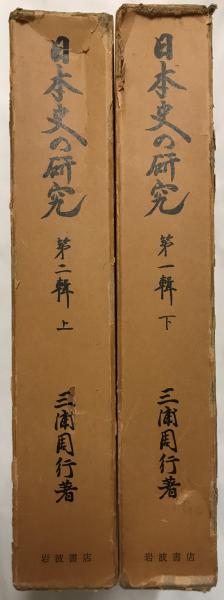 日本史の研究
第一輯
下
三浦周行著
岩波書店
日本史の研究
第二輯
上
三浦周行著
岩波書店